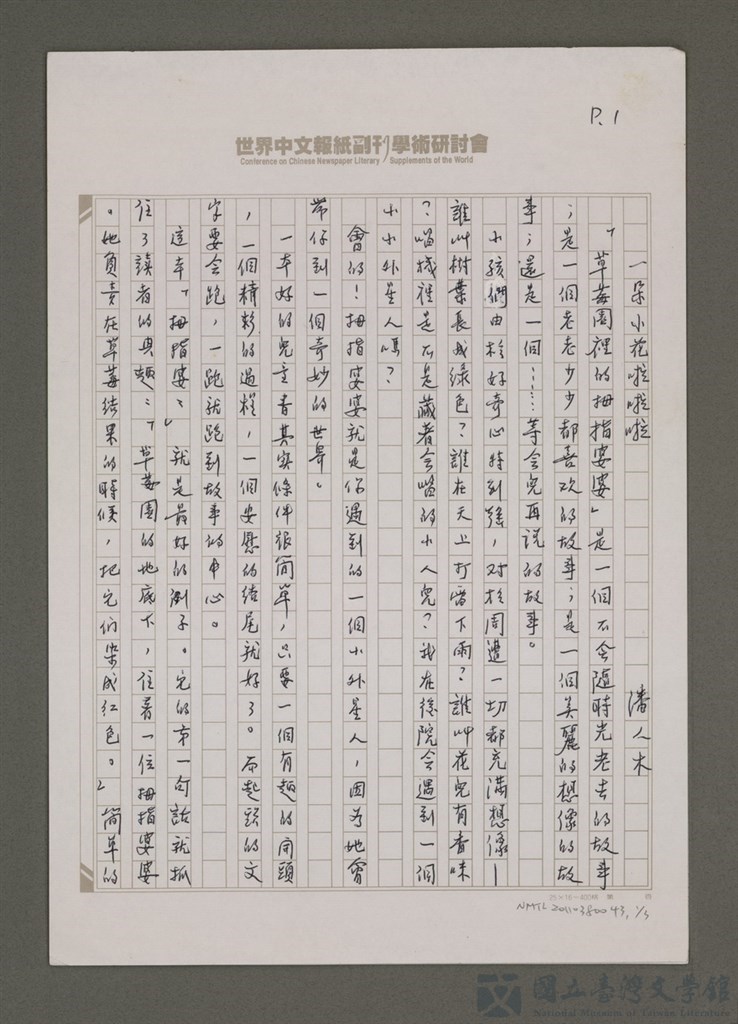 P.1
世界中文報紙副刊學術研討會
Conference on Chinese Newspaper Literary Supplements of the World
一朵小花啦啦啦 潘人木
「草莓園裡的拇指婆婆」是一個不會隨時光老去的故事
；是一個老老少少都喜欢的故事；是一個美麗的想像的故
事；還是一個……等会兒再說的故事。
小孩們由於好奇心特別強，对於周遭一切都充滿想像—
誰叫樹葉長成綠色？誰在天上打雷下雨？誰叫花兒有香味
？喵機裡是不是藏著会喵的小人兒？我在後院会遇到一個
小小外星人嗎？
會的！拇指婆婆就是你遇到的一個小外星人，因为她會
帶你到一個奇妙的世界。
一本好的兒童書其实條件很简单，只要一個有趣的開頭
，一個精彩的過程，一個安慰的结尾就好了。而起頭的文
字要会跑，一跑就跑到故事的中心。
這本「拇指婆婆」就是最好的例子。它的第一句話就抓
住了讀者的兴趣：「草莓園的地底下，住着一位拇指婆婆
。她負責在草莓结果的時候，把它们染成红色。」简单的
25×16＝400
NMTL 20110380043, 1/3
國立臺灣文學館
National Museum of Taiwan Literature